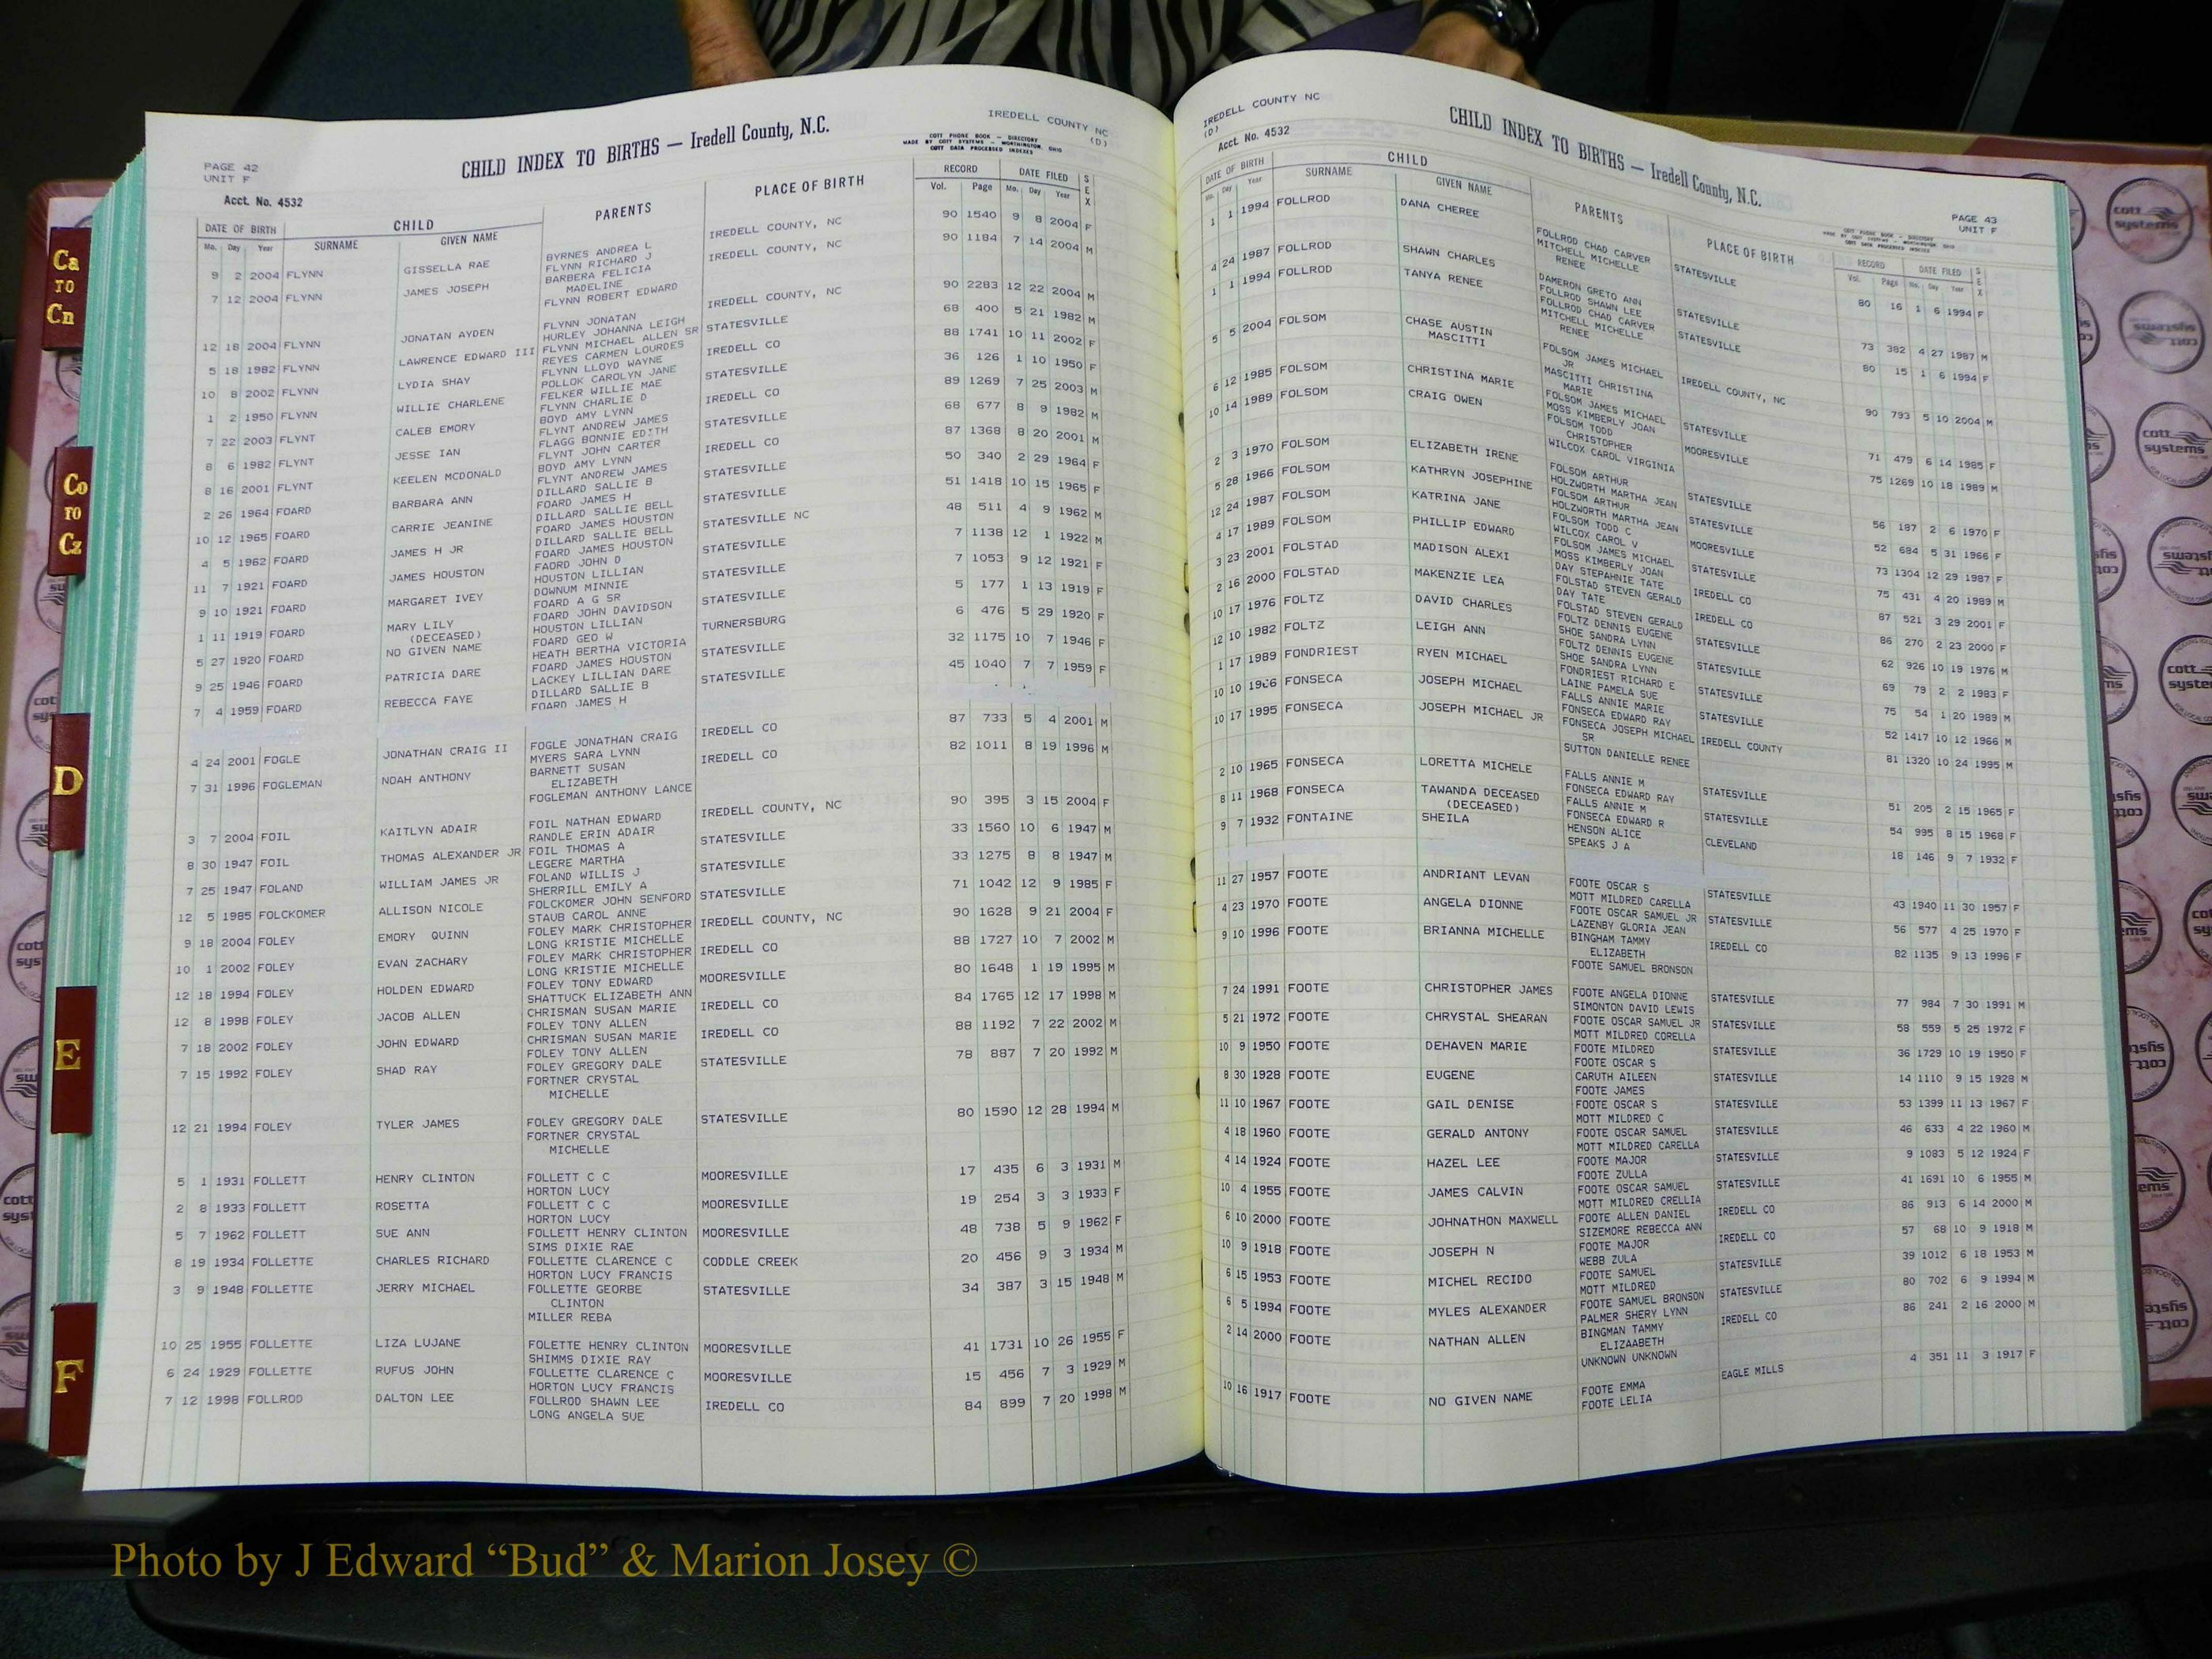 Ca
TO
Cn
Co
TO
Cz
D
E
F
PAGE 42
UNIT F
Acct. No. 4532
CHILD INDEX TO BIRTHS — Iredell County, N.C.
IREDELL COUNTY NC
(D)
COTT PHONE BOOK — DIRECTORY
MADE BY COTT SYSTEMS — WORTHINGTON, OHIO
COTT DATA PROCESSED INDEXES
DATE OF BIRTH CHILD PARENTS PLACE OF BIRTH RECORD DATE FILED SEX
Mo. Day Year SURNAME GIVEN NAME Vol. Page Mo. Day Year
9 2 2004 FLYNN GISSELLA RAE BYRNES ANDREA L IREDELL COUNTY, NC 90 1540 9 8 2004 F
FLYNN RICHARD J
7 12 2004 FLYNN JAMES JOSEPH BARBERA FELICIA IREDELL COUNTY, NC 90 1184 7 14 2004 M
MADELINE
FLYNN ROBERT EDWARD
12 18 2004 FLYNN JONATAN AYDEN FLYNN JONATAN IREDELL COUNTY, NC 90 2283 12 22 2004 M
HURLEY JOHANNA LEIGH
5 18 1982 FLYNN LAWRENCE EDWARD III FLYNN MICHAEL ALLEN SR STATESVILLE 68 400 5 21 1982 M
REYES CARMEN LOURDES
10 8 2002 FLYNN LYDIA SHAY FLYNN LLOYD WAYNE IREDELL CO 88 1741 10 11 2002 F
POLLOK CAROLYN JANE
1 2 1950 FLYNN WILLIE CHARLENE FELKER WILLIE MAE STATESVILLE 36 126 1 10 1950 F
FLYNN CHARLIE D
7 22 2003 FLYNT CALEB EMORY BOYD AMY LYNN IREDELL CO 89 1269 7 25 2003 M
FLYNT ANDREW JAMES
8 6 1982 FLYNT JESSE IAN FLAGG BONNIE EDITH STATESVILLE 68 677 8 9 1982 M
FLYNT JOHN CARTER
8 16 2001 FLYNT KEELEN MCDONALD BOYD AMY LYNN IREDELL CO 87 1368 8 20 2001 M
FLYNT ANDREW JAMES
2 26 1964 FOARD BARBARA ANN DILLARD SALLIE B STATESVILLE 50 340 2 29 1964 F
FOARD JAMES H
10 12 1965 FOARD CARRIE JEANINE DILLARD SALLIE BELL STATESVILLE 51 1418 10 15 1965 F
FOARD JAMES HOUSTON
4 5 1962 FOARD JAMES H JR DILLARD SALLIE BELL STATESVILLE NC 48 511 4 9 1962 M
FOARD JAMES HOUSTON
11 7 1921 FOARD JAMES HOUSTON FAORD JOHN D STATESVILLE 7 1138 12 1 1922 M
HOUSTON LILLIAN
9 10 1921 FOARD MARGARET IVEY DOWNUM MINNIE STATESVILLE 7 1053 9 12 1921 F
FOARD A G SR
1 11 1919 FOARD MARY LILY FOARD JOHN DAVIDSON STATESVILLE 5 177 1 13 1919 F
(DECEASED) HOUSTON LILLIAN
5 27 1920 FOARD NO GIVEN NAME FOARD GEO W TURNERSBURG 6 476 5 29 1920 F
HEATH BERTHA VICTORIA
9 25 1946 FOARD PATRICIA DARE FOARD JAMES HOUSTON STATESVILLE 32 1175 10 7 1946 F
LACKEY LILLIAN DARE
7 4 1959 FOARD REBECCA FAYE DILLARD SALLIE B STATESVILLE 45 1040 7 7 1959 F
FOARD JAMES H
4 24 2001 FOGLE JONATHAN CRAIG II FOGLE JONATHAN CRAIG IREDELL CO 87 733 5 4 2001 M
MYERS SARA LYNN
7 31 1996 FOGLEMAN NOAH ANTHONY BARNETT SUSAN IREDELL CO 82 1011 8 19 1996 M
ELIZABETH
FOGLEMAN ANTHONY LANCE
3 7 2004 FOIL KAITLYN ADAIR FOIL NATHAN EDWARD IREDELL COUNTY, NC 90 395 3 15 2004 F
RANDLE ERIN ADAIR
8 30 1947 FOIL THOMAS ALEXANDER JR FOIL THOMAS A STATESVILLE 33 1560 10 6 1947 M
LEGERE MARTHA
7 25 1947 FOLAND WILLIAM JAMES JR FOLAND WILLIS J STATESVILLE 33 1275 8 8 1947 M
SHERRILL EMILY A
12 5 1985 FOLCKOMER ALLISON NICOLE FOLCKOMER JOHN SENFORD STATESVILLE 71 1042 12 9 1985 F
STAUB CAROL ANNE
9 18 2004 FOLEY EMORY QUINN FOLEY MARK CHRISTOPHER IREDELL COUNTY, NC 90 1628 9 21 2004 F
LONG KRISTIE MICHELLE
10 1 2002 FOLEY EVAN ZACHARY FOLEY MARK CHRISTOPHER IREDELL CO 88 1727 10 7 2002 M
LONG KRISTIE MICHELLE
12 18 1994 FOLEY HOLDEN EDWARD FOLEY TONY EDWARD MOORESVILLE 80 1648 1 19 1995 M
SHATTUCK ELIZABETH ANN
12 8 1998 FOLEY JACOB ALLEN CHRISMAN SUSAN MARIE IREDELL CO 84 1765 12 17 1998 M
FOLEY TONY ALLEN
7 18 2002 FOLEY JOHN EDWARD CHRISMAN SUSAN MARIE IREDELL CO 88 1192 7 22 2002 M
FOLEY TONY ALLEN
7 15 1992 FOLEY SHAD RAY FOLEY GREGORY DALE STATESVILLE 78 887 7 20 1992 M
FORTNER CRYSTAL
MICHELLE
12 21 1994 FOLEY TYLER JAMES FOLEY GREGORY DALE STATESVILLE 80 1590 12 28 1994 M
FORTNER CRYSTAL
MICHELLE
5 1 1931 FOLLETT HENRY CLINTON FOLLETT C C MOORESVILLE 17 435 6 3 1931 M
HORTON LUCY
2 8 1933 FOLLETT ROSETTA FOLLETT C C MOORESVILLE 19 254 3 3 1933 F
HORTON LUCY
5 7 1962 FOLLETT SUE ANN FOLLETT HENRY CLINTON MOORESVILLE 48 738 5 9 1962 F
SIMS DIXIE RAE
8 19 1934 FOLLETTE CHARLES RICHARD FOLLETTE CLARENCE C CODDLE CREEK 20 456 9 3 1934 M
HORTON LUCY FRANCIS
3 9 1948 FOLLETTE JERRY MICHAEL FOLLETTE GEORBE STATESVILLE 34 387 3 15 1948 M
CLINTON
MILLER REBA
10 25 1955 FOLLETTE LIZA LUJANE FOLETTE HENRY CLINTON MOORESVILLE 41 1731 10 26 1955 F
SHIMMS DIXIE RAY
6 24 1929 FOLLETTE RUFUS JOHN FOLLETTE CLARENCE C MOORESVILLE 15 456 7 3 1929 M
HORTON LUCY FRANCIS
7 12 1998 FOLLROD DALTON LEE FOLLROD SHAWN LEE IREDELL CO 84 899 7 20 1998 M
LONG ANGELA SUE
IREDELL COUNTY NC
(D)
Acct. No. 4532
CHILD INDEX TO BIRTHS — Iredell County, N.C.
PAGE 43
UNIT F
COTT PHONE BOOK — DIRECTORY
MADE BY COTT SYSTEMS — WORTHINGTON, OHIO
COTT DATA PROCESSED INDEXES
DATE OF BIRTH CHILD PARENTS PLACE OF BIRTH RECORD DATE FILED SEX
Mo. Day Year SURNAME GIVEN NAME Vol. Page Mo. Day Year
1 1 1994 FOLLROD DANA CHEREE FOLLROD CHAD CARVER STATESVILLE 80 16 1 6 1994 F
MITCHELL MICHELLE
RENEE
4 24 1987 FOLLROD SHAWN CHARLES DAMERON GRETO ANN STATESVILLE 73 382 4 27 1987 M
FOLLROD SHAWN LEE
1 1 1994 FOLLROD TANYA RENEE FOLLROD CHAD CARVER STATESVILLE 80 15 1 6 1994 F
MITCHELL MICHELLE
RENEE
5 5 2004 FOLSOM CHASE AUSTIN FOLSOM JAMES MICHAEL IREDELL COUNTY, NC 90 793 5 10 2004 M
MASCITTI JR
MASCITTI CHRISTINA
MARIE
6 12 1985 FOLSOM CHRISTINA MARIE FOLSOM JAMES MICHAEL STATESVILLE 71 479 6 14 1985 F
MOSS KIMBERLY JOAN
10 14 1989 FOLSOM CRAIG OWEN FOLSOM TODD MOORESVILLE 75 1269 10 18 1989 M
CHRISTOPHER
WILCOX CAROL VIRGINIA
2 3 1970 FOLSOM ELIZABETH IRENE FOLSOM ARTHUR STATESVILLE 56 187 2 6 1970 F
HOLZWORTH MARTHA JEAN
5 28 1966 FOLSOM KATHRYN JOSEPHINE FOLSOM ARTHUR STATESVILLE 52 684 5 31 1966 F
HOLZWORTH MARTHA JEAN
12 24 1987 FOLSOM KATRINA JANE FOLSOM TODD C MOORESVILLE 73 1304 12 29 1987 F
WILCOX CAROL V
4 17 1989 FOLSOM PHILLIP EDWARD FOLSOM JAMES MICHAEL STATESVILLE 75 431 4 20 1989 M
MOSS KIMBERLY JOAN
3 23 2001 FOLSTAD MADISON ALEXI DAY STEPAHNIE TATE IREDELL CO 87 521 3 29 2001 F
FOLSTAD STEVEN GERALD
2 16 2000 FOLSTAD MAKENZIE LEA DAY TATE IREDELL CO 86 270 2 23 2000 F
FOLSTAD STEVEN GERALD
10 17 1976 FOLTZ DAVID CHARLES FOLTZ DENNIS EUGENE STATESVILLE 62 926 10 19 1976 M
SHOE SANDRA LYNN
12 10 1982 FOLTZ LEIGH ANN FOLTZ DENNIS EUGENE STATESVILLE 69 79 2 2 1983 F
SHOE SANDRA LYNN
1 17 1989 FONDRIEST RYEN MICHAEL FONDRIEST RICHARD E STATESVILLE 75 54 1 20 1989 M
LAINE PAMELA SUE
10 10 1966 FONSECA JOSEPH MICHAEL FALLS ANNIE MARIE STATESVILLE 52 1417 10 12 1966 M
FONSECA EDWARD RAY
10 17 1995 FONSECA JOSEPH MICHAEL JR FONSECA JOSEPH MICHAEL IREDELL COUNTY 81 1320 10 24 1995 M
SR
SUTTON DANIELLE RENEE
2 10 1965 FONSECA LORETTA MICHELE FALLS ANNIE M STATESVILLE 51 205 2 15 1965 F
FONSECA EDWARD RAY
8 11 1968 FONSECA TAWANDA DECEASED FALLS ANNIE M STATESVILLE 54 995 8 15 1968 F
(DECEASED) FONSECA EDWARD R
9 7 1932 FONTAINE SHEILA HENSON ALICE CLEVELAND 18 146 9 7 1932 F
SPEAKS J A
11 27 1957 FOOTE ANDRIANT LEVAN FOOTE OSCAR S STATESVILLE 43 1940 11 30 1957 F
MOTT MILDRED CARELLA
4 23 1970 FOOTE ANGELA DIONNE FOOTE OSCAR SAMUEL JR STATESVILLE 56 577 4 25 1970 F
LAZENBY GLORIA JEAN
9 10 1996 FOOTE BRIANNA MICHELLE BINGHAM TAMMY IREDELL CO 82 1135 9 13 1996 F
ELIZABETH
FOOTE SAMUEL BRONSON
7 24 1991 FOOTE CHRISTOPHER JAMES FOOTE ANGELA DIONNE STATESVILLE 77 984 7 30 1991 M
SIMONTON DAVID LEWIS
5 21 1972 FOOTE CHRYSTAL SHEARAN FOOTE OSCAR SAMUEL JR STATESVILLE 58 559 5 25 1972 F
MOTT MILDRED CORELLA
10 9 1950 FOOTE DEHAVEN MARIE FOOTE MILDRED STATESVILLE 36 1729 10 19 1950 F
FOOTE OSCAR S
8 30 1928 FOOTE EUGENE CARUTH AILEEN STATESVILLE 14 1110 9 15 1928 M
FOOTE JAMES
11 10 1967 FOOTE GAIL DENISE FOOTE OSCAR S STATESVILLE 53 1399 11 13 1967 F
MOTT MILDRED C
4 18 1960 FOOTE GERALD ANTONY FOOTE OSCAR SAMUEL STATESVILLE 46 633 4 22 1960 M
MOTT MILDRED CARELLA
4 14 1924 FOOTE HAZEL LEE FOOTE MAJOR STATESVILLE 9 1083 5 12 1924 F
FOOTE ZULLA
10 4 1955 FOOTE JAMES CALVIN FOOTE OSCAR SAMUEL STATESVILLE 41 1691 10 6 1955 M
MOTT MILDRED CRELLIA
6 10 2000 FOOTE JOHNATHON MAXWELL FOOTE ALLEN DANIEL IREDELL CO 86 913 6 14 2000 M
SIZEMORE REBECCA ANN
10 9 1918 FOOTE JOSEPH N FOOTE MAJOR IREDELL CO 57 68 10 9 1918 M
WEBB ZULA
6 15 1953 FOOTE MICHEL RECIDO FOOTE SAMUEL STATESVILLE 39 1012 6 18 1953 M
MOTT MILDRED
6 5 1994 FOOTE MYLES ALEXANDER FOOTE SAMUEL BRONSON STATESVILLE 80 702 6 9 1994 M
PALMER SHERY LYNN
2 14 2000 FOOTE NATHAN ALLEN BINGMAN TAMMY IREDELL CO 86 241 2 16 2000 M
ELIZAABETH
UNKNOWN UNKNOWN
10 16 1917 FOOTE NO GIVEN NAME FOOTE EMMA EAGLE MILLS 4 351 11 3 1917 F
FOOTE LELIA
cott
systems
Photo by J Edward “Bud” & Marion Josey ©